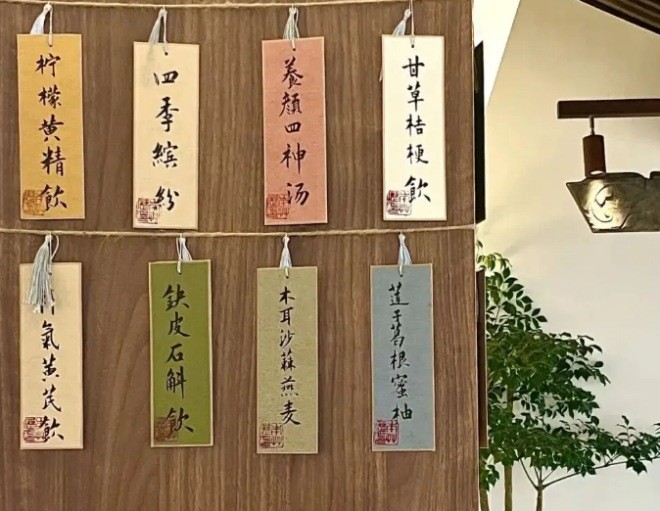 柠檬黄精飲
四季缤纷
養顏四神汤
甘草桔梗飲
氣黄芪飲
鉄皮石斛飲
木耳沙蔴燕麦
莲子葛根蜜柚